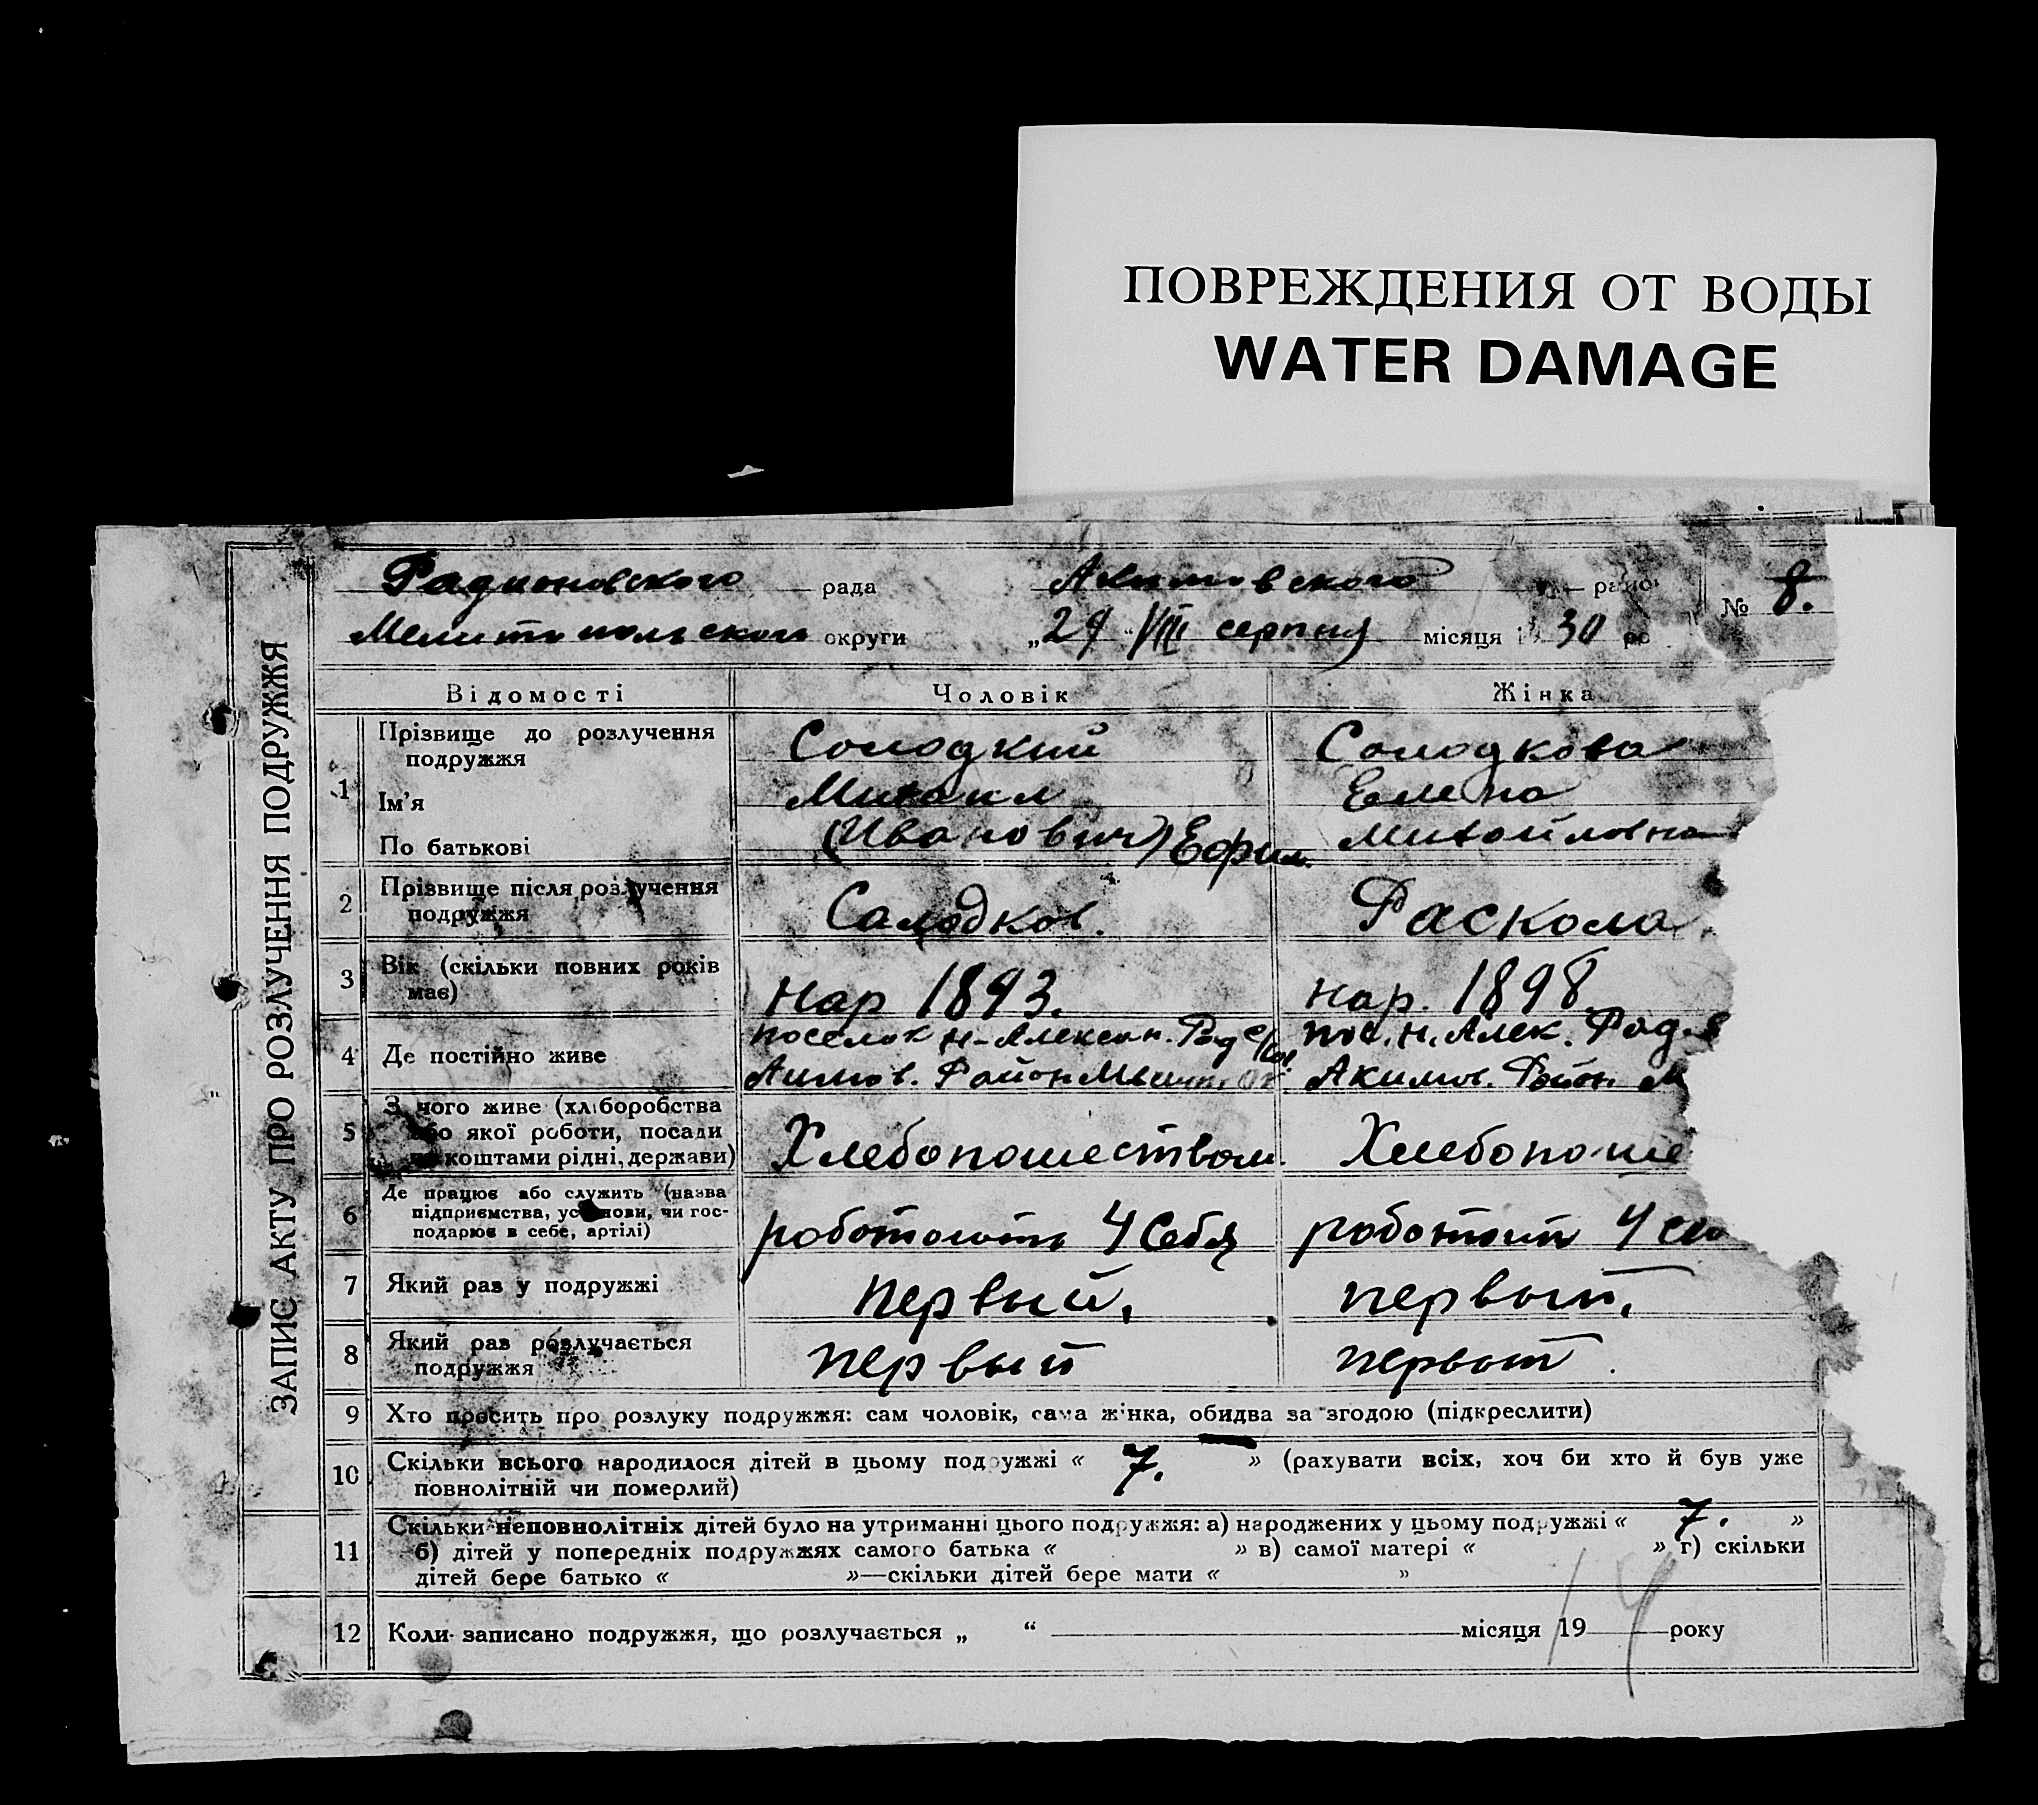 ПОВРЕЖДЕНИЯ ОТ ВОДЫ
WATER DAMAGE
ЗАПИС АКТУ ПРО РОЗЛУЧЕННЯ ПОДРУЖЖЯ
Радионовского рада Акимовского райо № 8.
Мелитопольского округи „29 “ VIII серпня місяця 30 ро
Відомості Чоловік Жінка
1 Прізвище до розлучення подружжя Солодкий Солодкова
Ім'я Михаил Елена
По батькові (Иванович) Ефим. Михайловна
2 Прізвище після розлучення подружжя Салодков. Раскола
3 Вік (скільки повних років має) нар 1893. нар. 1898
4 Де постійно живе поселок Н-Алексан. Рад с/сов пос. Н. Алек. Рад.
Акимов. Район Акимов. Район. М
5 З чого живе (хліборобства або якої роботи, посади чи коштами рідні, держави) Хлебопашеством. Хлебопаше
6 Де працює або служить (назва підприємства, установи, чи господарює в себе, артілі) роботоить у себя роботоит у се
7 Який раз у подружжі первый. первый.
8 Який раз розлучається подружжя первый первый
9 Хто просить про розлуку подружжя: сам чоловік, сама жінка, обидва за згодою (підкреслити)
10 Скільки всього народилося дітей в цьому подружжі « 7. » (рахувати всіх, хоч би хто й був уже
повнолітній чи померлий)
11 Скільки неповнолітніх дітей було на утриманні цього подружжя: а) народжених у цьому подружжі « 7. »
б) дітей у попередніх подружжях самого батька « » в) самої матері « » г) скільки
дітей бере батько « »—скільки дітей бере мати « »
12 Коли записано подружжя, що розлучається „ “ місяця 19 року